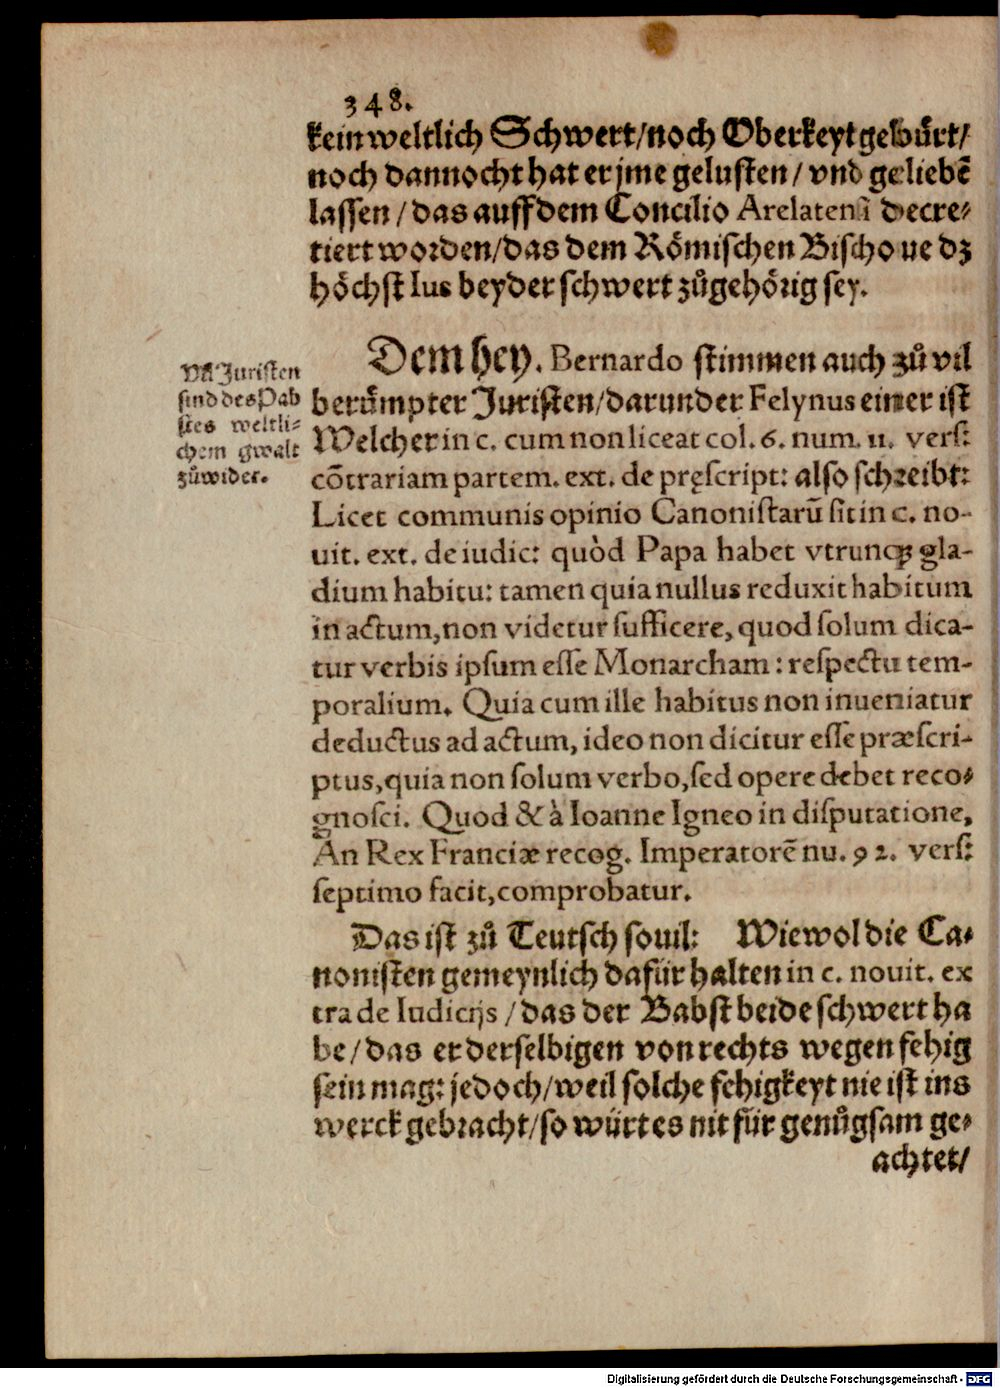 348.
kein weltlich Schwert/noch Oberkeyt gebuͤrt/
noch dannocht hat er jme gelusten/ vnd geliebẽ
lassen/das auff dem Concilio Arelatensi decre⸗
tiert worden/das dem Roͤmischen Bischoue dz
hoͤchst Ius beyder schwert zuͦgehoͤrig sey.
Dem hey. Bernardo stimmen auch zuͦ vil
beruͤmpter Juristen/darunder Felynus einer ist
Welcher in c. cum non liceat col. 6. num. 11. vers:
cõtrariam partem. ext. de pręscript: also schreibt:
Licet communis opinio Canonistarũ sit in c. no-
uit. ext. de iudic: quòd Papa habet vtrunqꝫ gla-
dium habitu: tamen quia nullus reduxit habitum
in actum, non videtur sufficere, quod solum dica-
tur verbis ipsum esse Monarcham: respectu tem-
poralium. Quia cum ille habitus non inueniatur
deductus ad actum, ideo non dicitur esse præscri-
ptus, quia non solum verbo, sed opere debet reco⸗
gnosci. Quod & à Ioanne Igneo in disputatione,
An Rex Franciæ recog. Imperatorẽ nu. 92. vers:
septimo facit, comprobatur.
Das ist zuͦ Teutsch souil: Wiewol die Ca⸗
nonisten gemeynlich dafür halten in c. nouit. ex
tra de Iudicijs/das der Babst beide schwert ha
be/das er derselbigen von rechts wegen fehig
sein mag: jedoch/weil solche fehigkeyt nie ist ins
werck gebracht/so würt es nit für genuͦgsam ge⸗
achtet/
Vil Juristen
sind des Pab
stes weltli⸗
chem gwalt
zuͦwider.
Digitalisierung gefördert durch die Deutsche Forschungsgemeinschaft - DFG